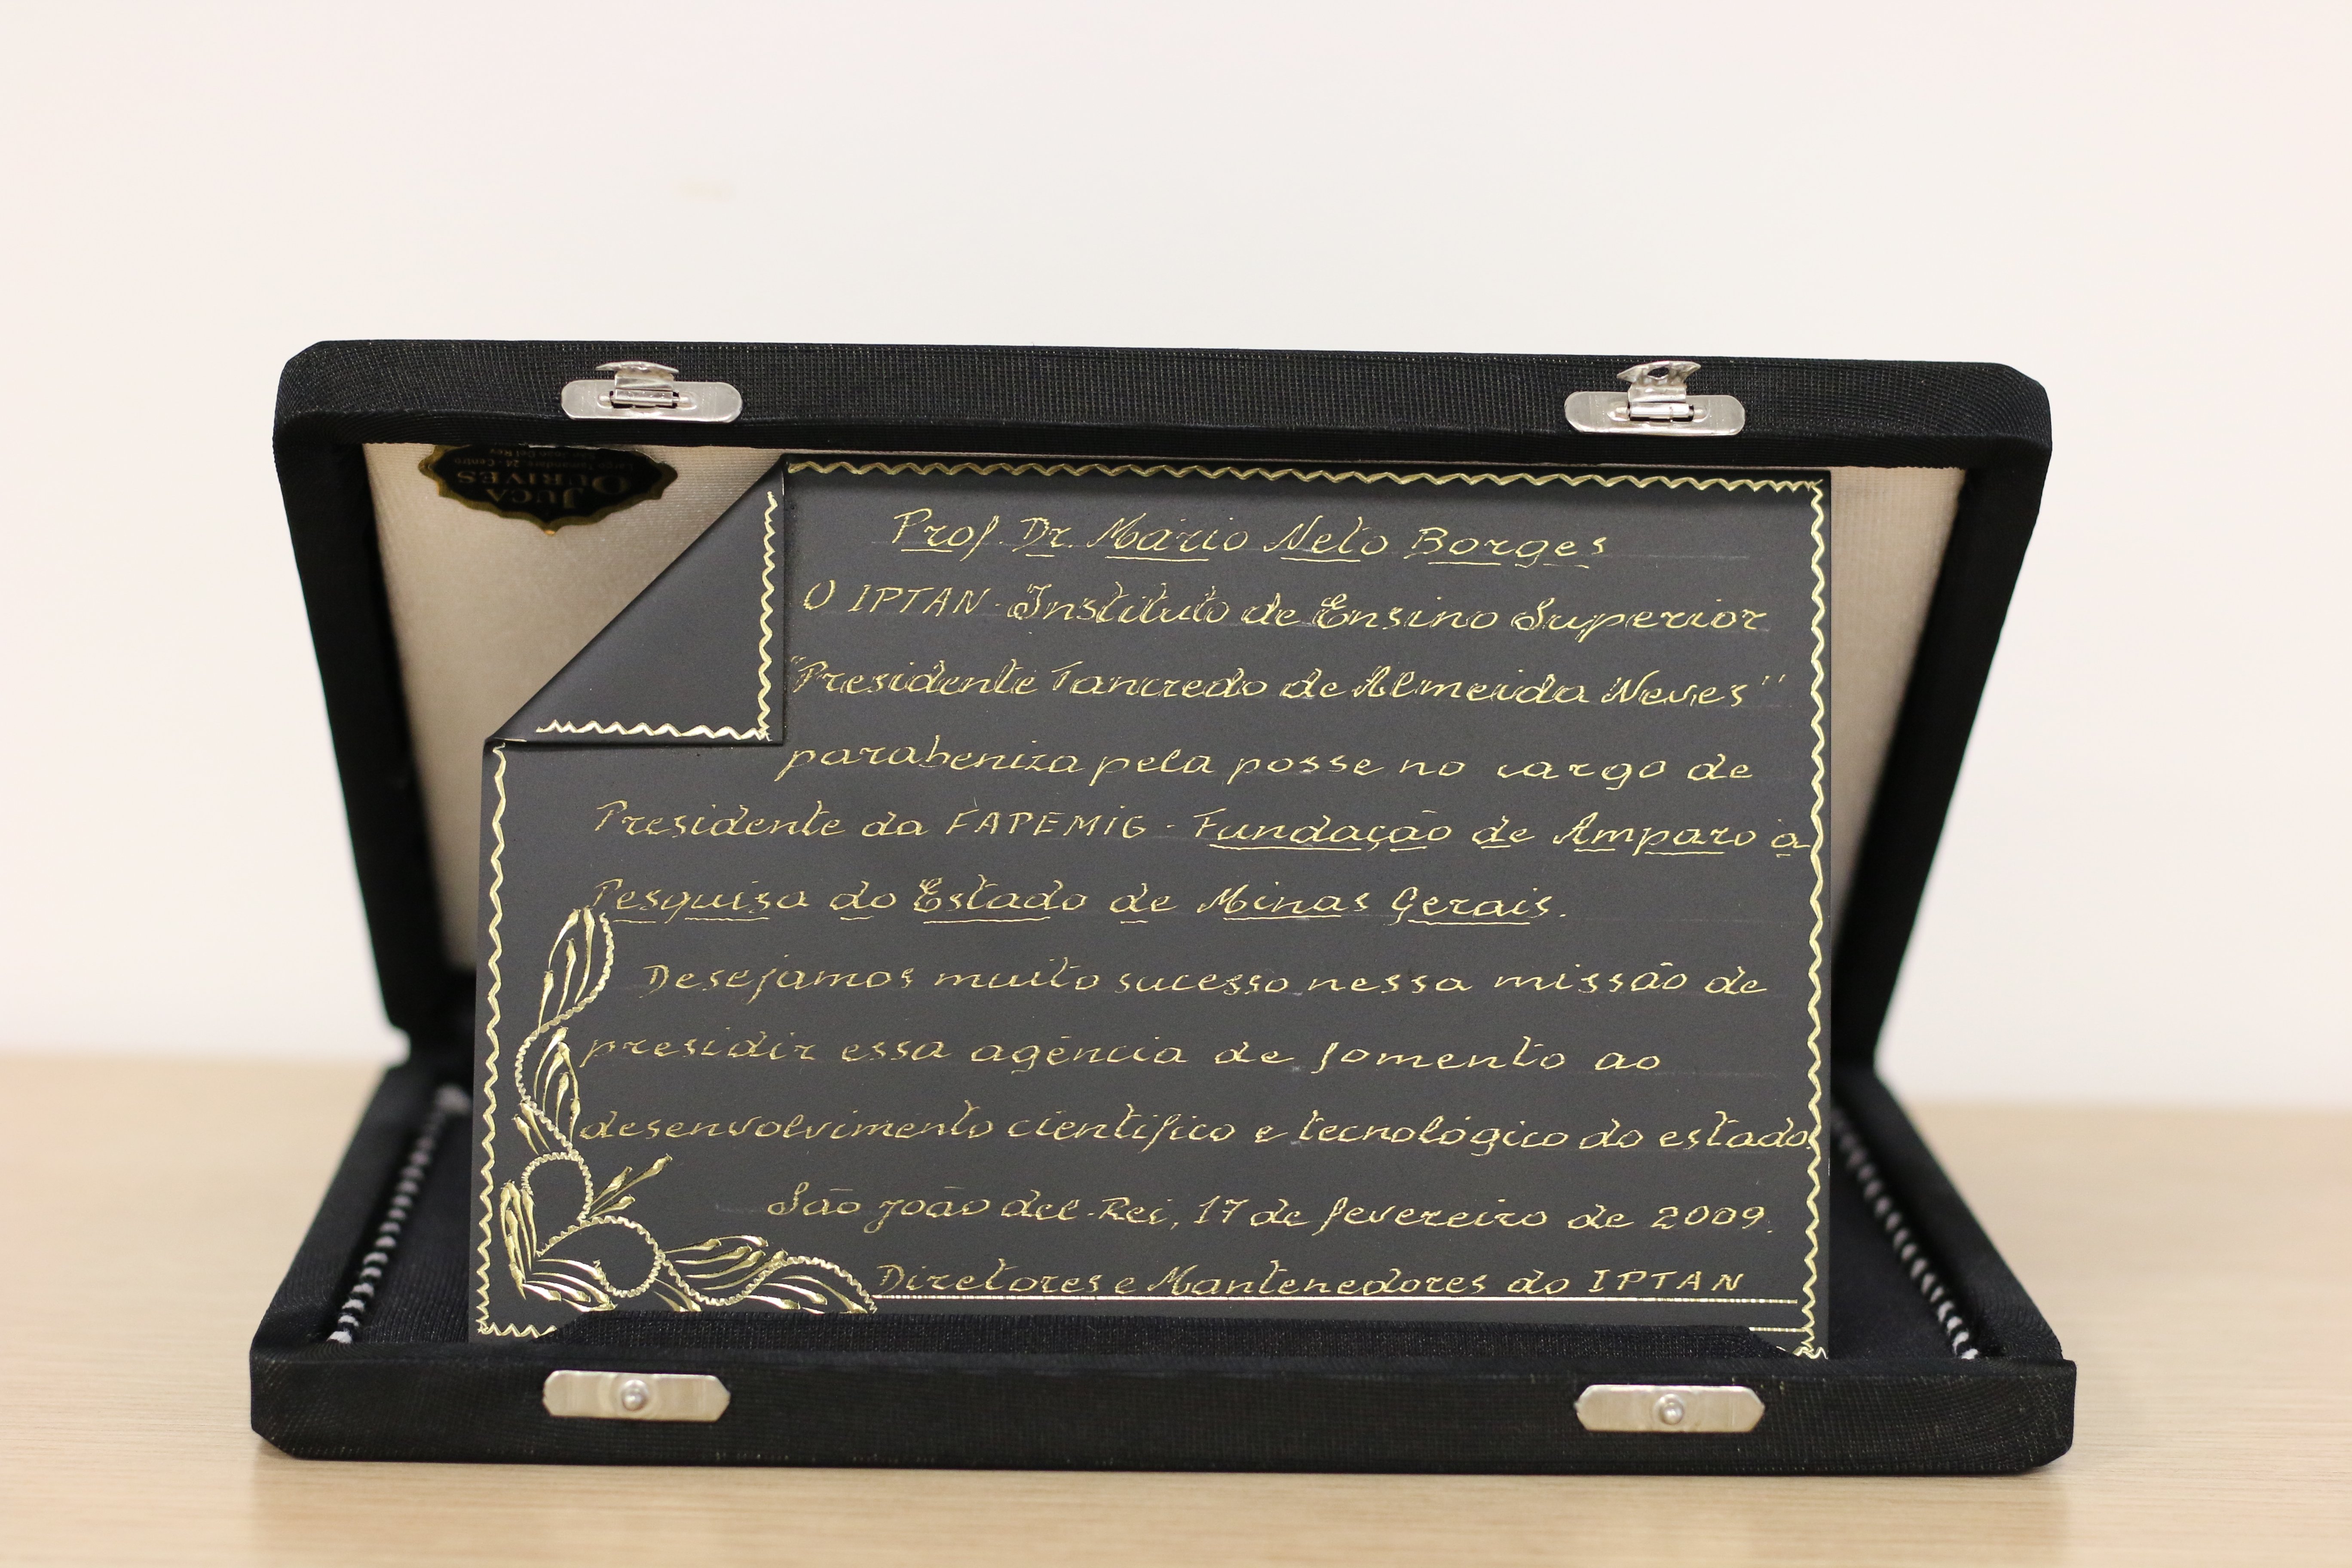 JUCA
OURIVES
Prof. Dr. Mário Neto Borges
O IPTAN - Instituto de Ensino Superior
"Presidente Tancredo de Almeida Neves"
parabeniza pela posse no cargo de
Presidente da FAPEMIG - Fundação de Amparo à
Pesquisa do Estado de Minas Gerais.
Desejamos muito sucesso nessa missão de
presidir essa agência de fomento ao
desenvolvimento científico e tecnológico do estado.
São João del-Rei, 17 de fevereiro de 2009.
Diretores e Mantenedores do IPTAN